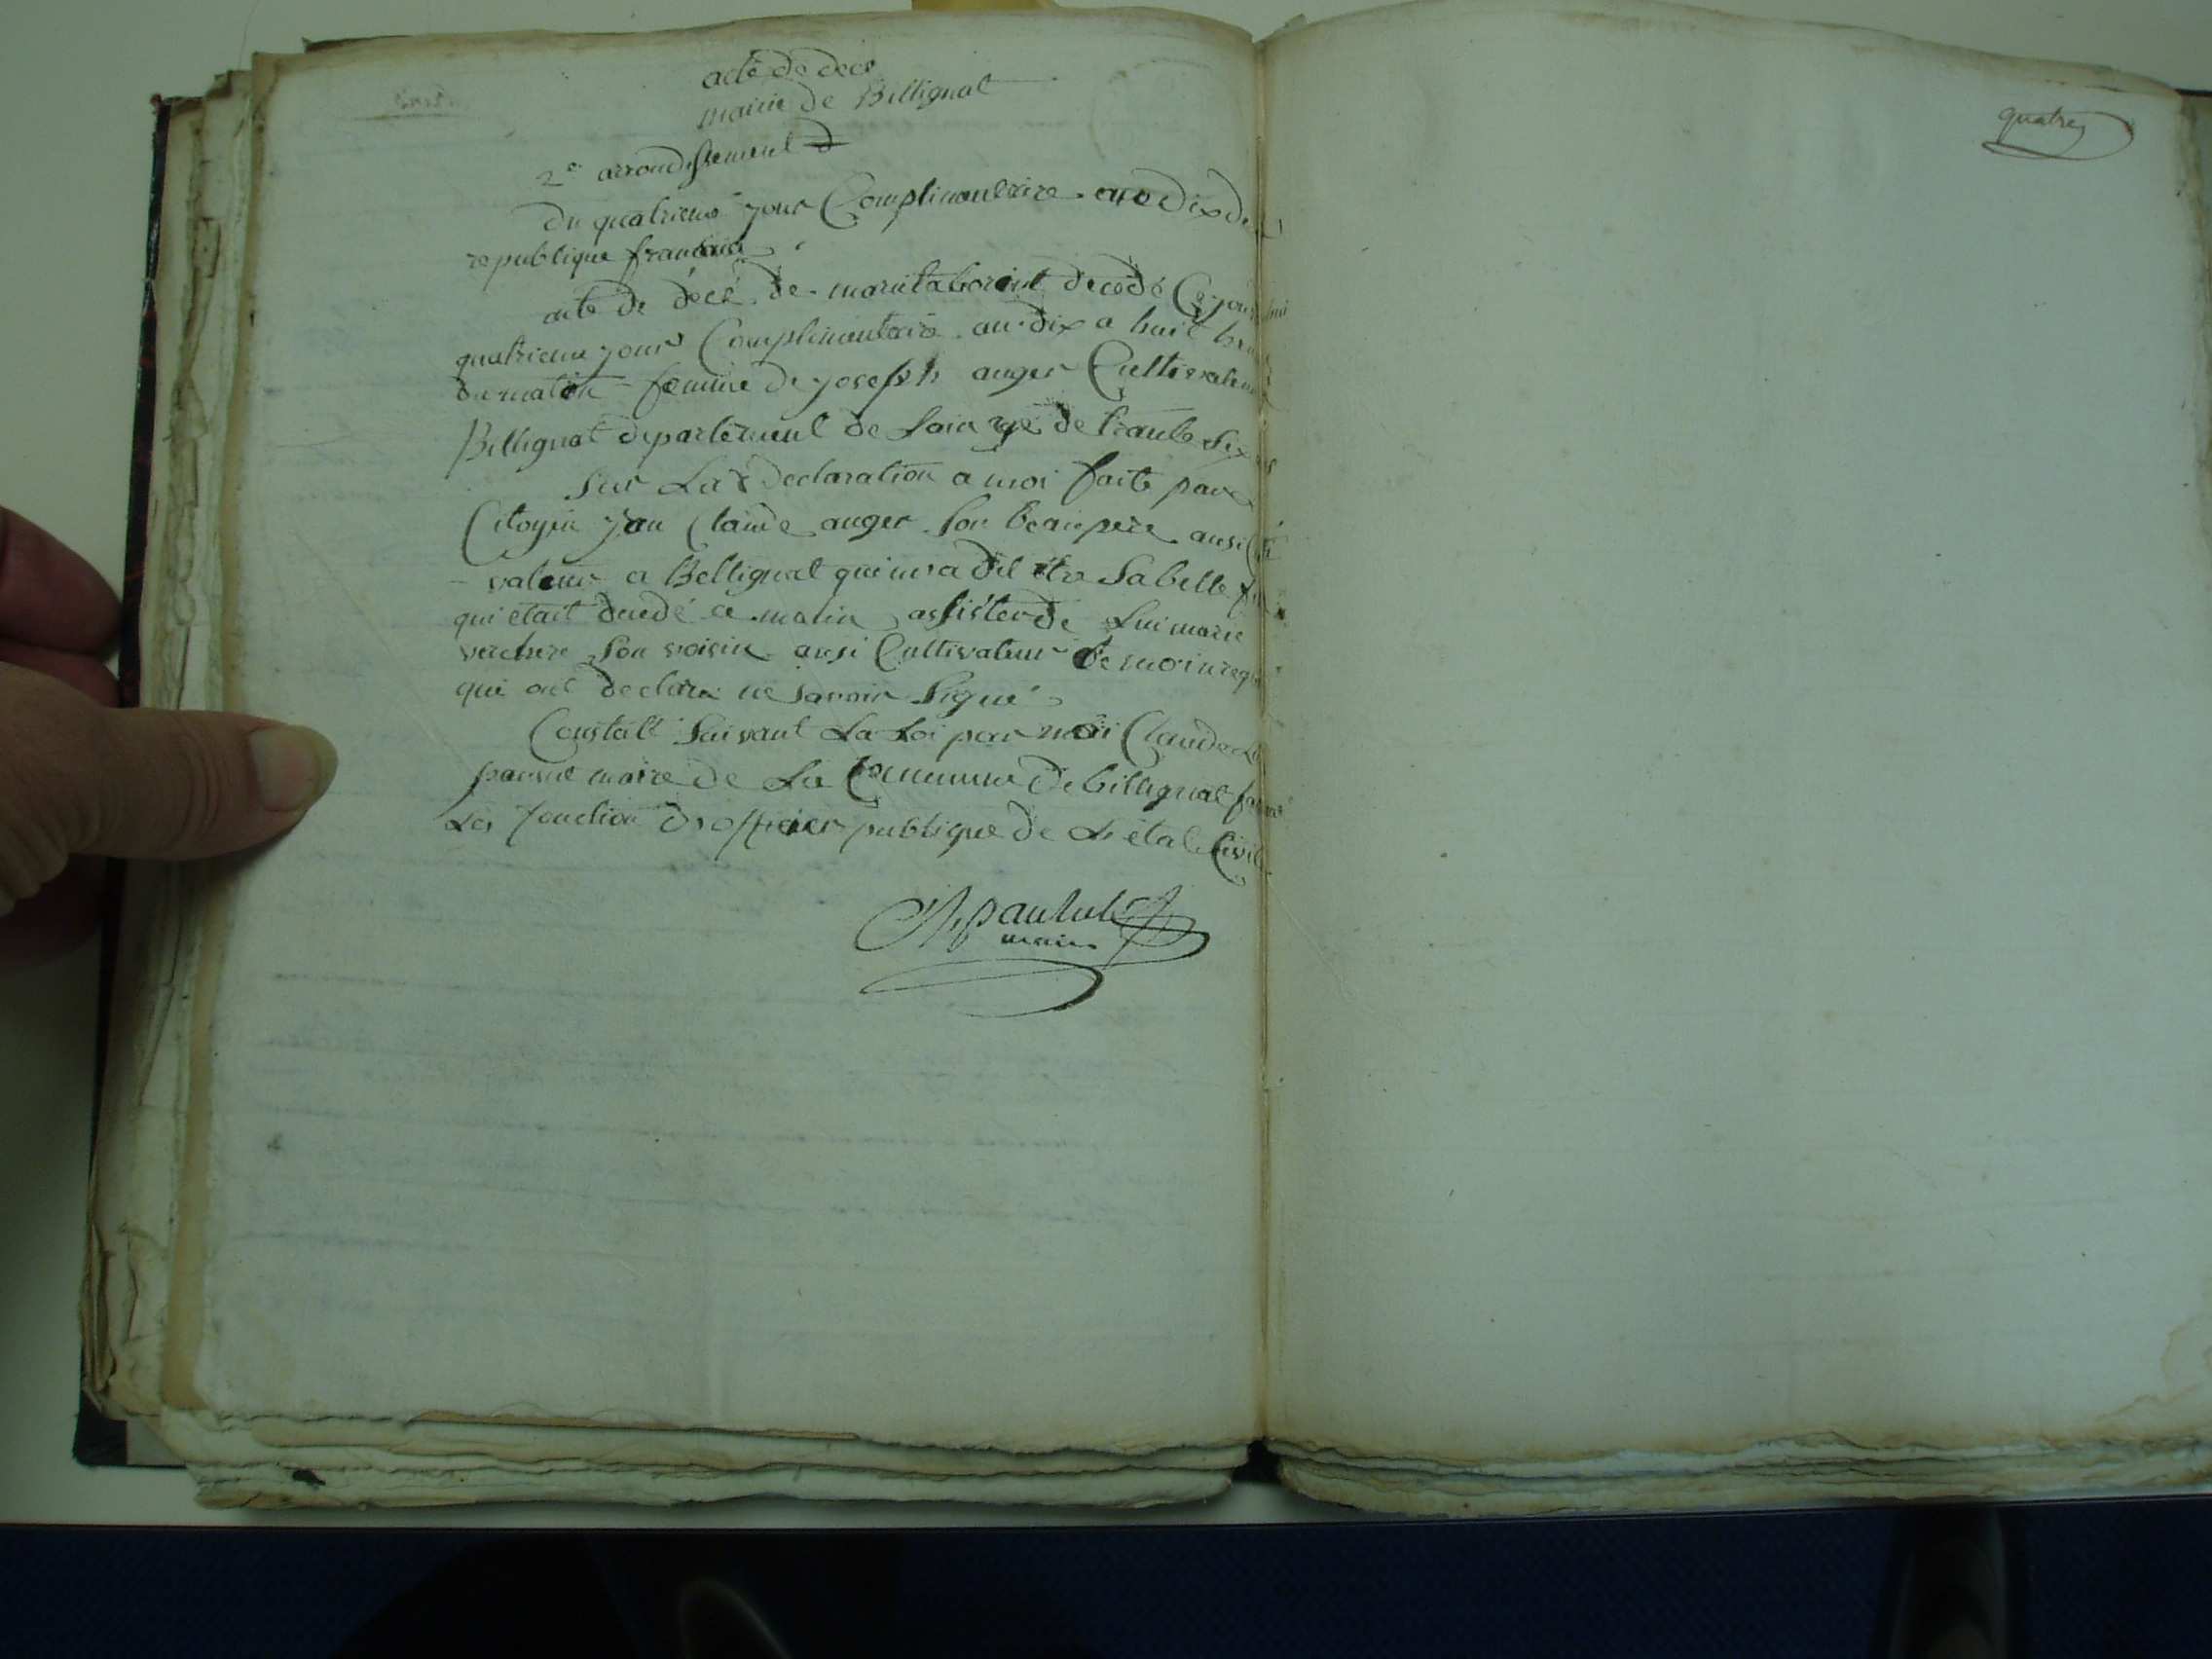 acte de decé
mairie de Billignat
2e arrondissement
du quatrieme jour Complimentaire an dix de
republique francaise
acte de décé de marie decedé Cejourdhui
quatrieme jour Complimentaire an dix a huit heur
du matin femme de joseph auger Cultivateur
Billignat departement de Lain agé de trante six
Sur La declaration a moi faite par
Citoyen jan Claude auger Son beaupere ausi Culti
- valeur a Bellignat qui ma dit etre Sa belle f
qui était decedé ce matin assister de Lui marie
verchere Son voisin ausi Cultivateur te moin requ
qui ont declare ne savoir Signé
Constaté Suivant La Loi par moi Claude
maire de La Commune de billignat faisant
Les fonction d officier publique de L état Civil
maire
quatre